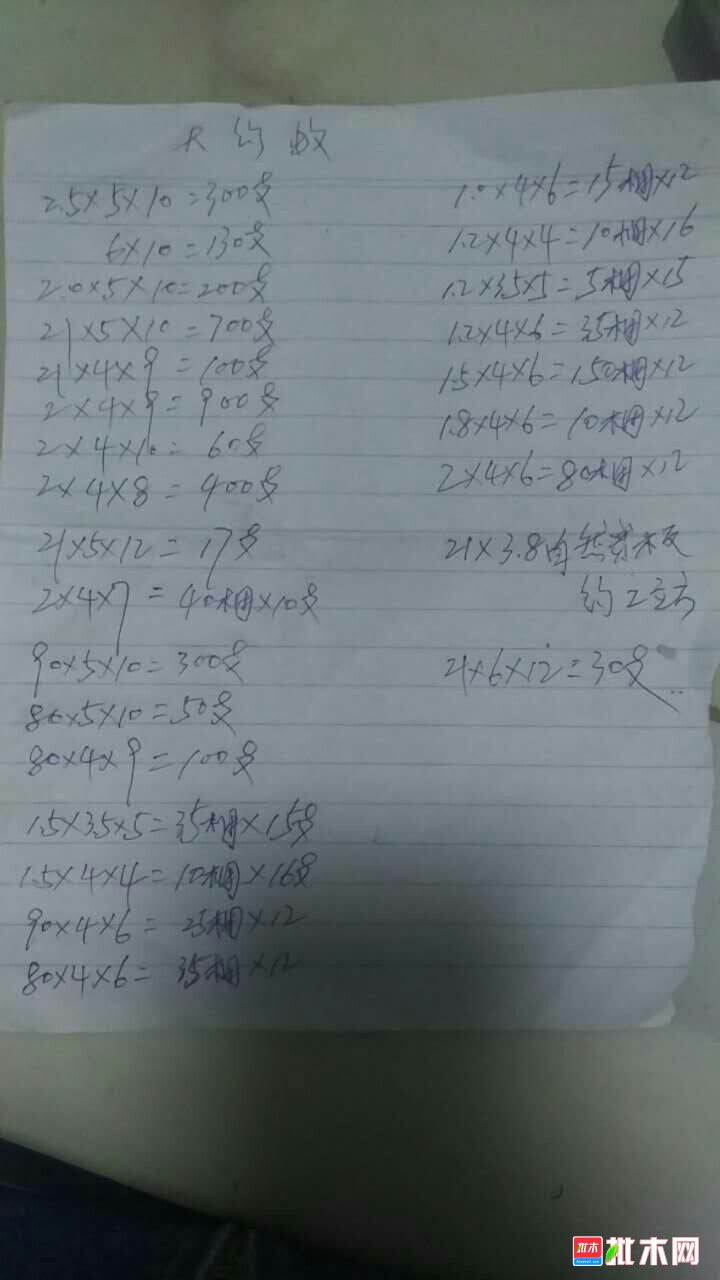 大约数
2.5×5×10=300支
6×10=130支
2.0×5×10=200支
21×5×10=700支
21×4×9=100支
2×4×9=900支
2×4×10=60支
2×4×8=400支
21×5×12=17支
2×4×7=40捆×10支
90×5×10=300支
80×5×10=50支
80×4×9=100支
1.5×3.5×5=35捆×15支
1.5×4×4=10捆×16支
90×4×6=25捆×12
80×4×6=35捆×12
1.0×4×6=15捆×12
1.2×4×4=10捆×16
1.2×3.5×5=5捆×15
1.2×4×6=35捆×12
1.5×4×6=150捆×12
1.8×4×6=10捆×12
2×4×6=80捆×12
21×3.8自然宽板
约2立方
21×6×12=30支
批木 批木网